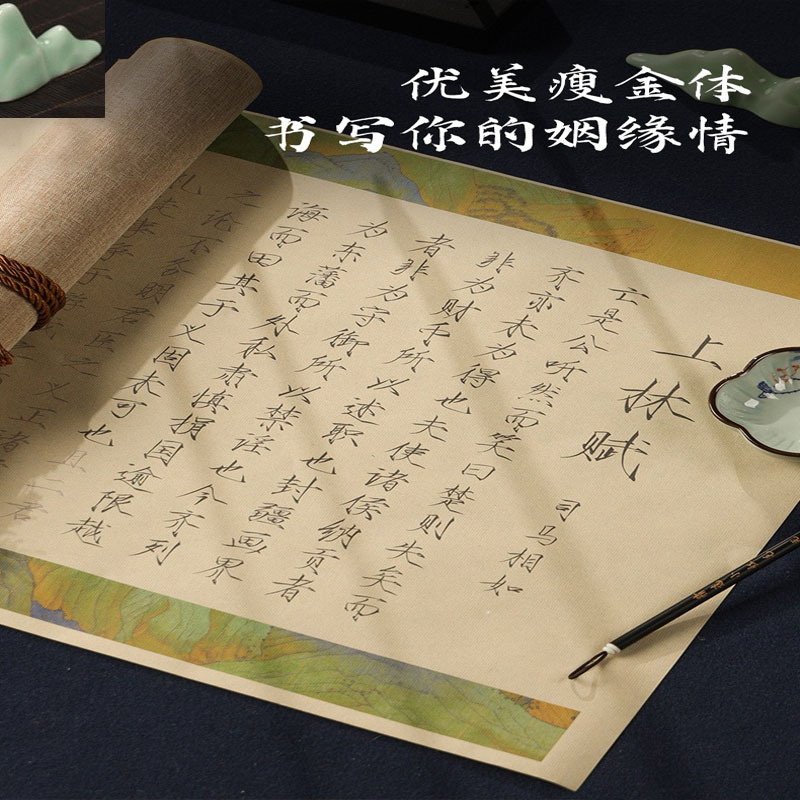 优美瘦金体
书写你的姻缘情
上林赋
司马相如
亡是公听然而笑曰楚则失矣而
齐亦未为得也夫使诸侯纳贡者
非为财币所以述职也封疆画界
者非为守御所以禁淫也今齐列
为东藩而外私肃慎捐国逾限越
海而田其于义固未可也且二君
之论不务明君臣之义正诸